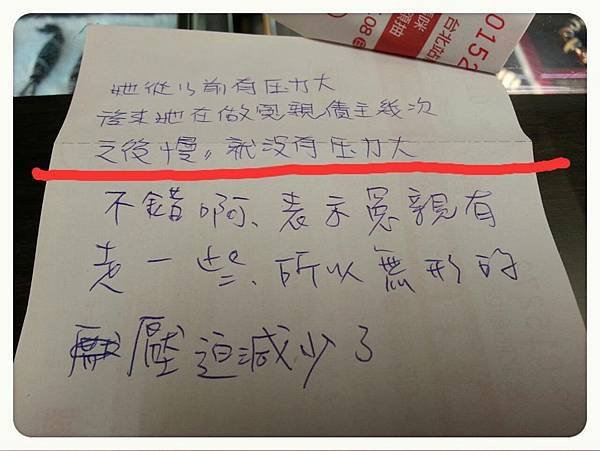 0152
台北站
她從以前有压力大
後來她在做冤親債主幾次
之後慢〃就没有压力大
不錯啊、表示冤親有
走一些、所以無形的
壓迫減少了